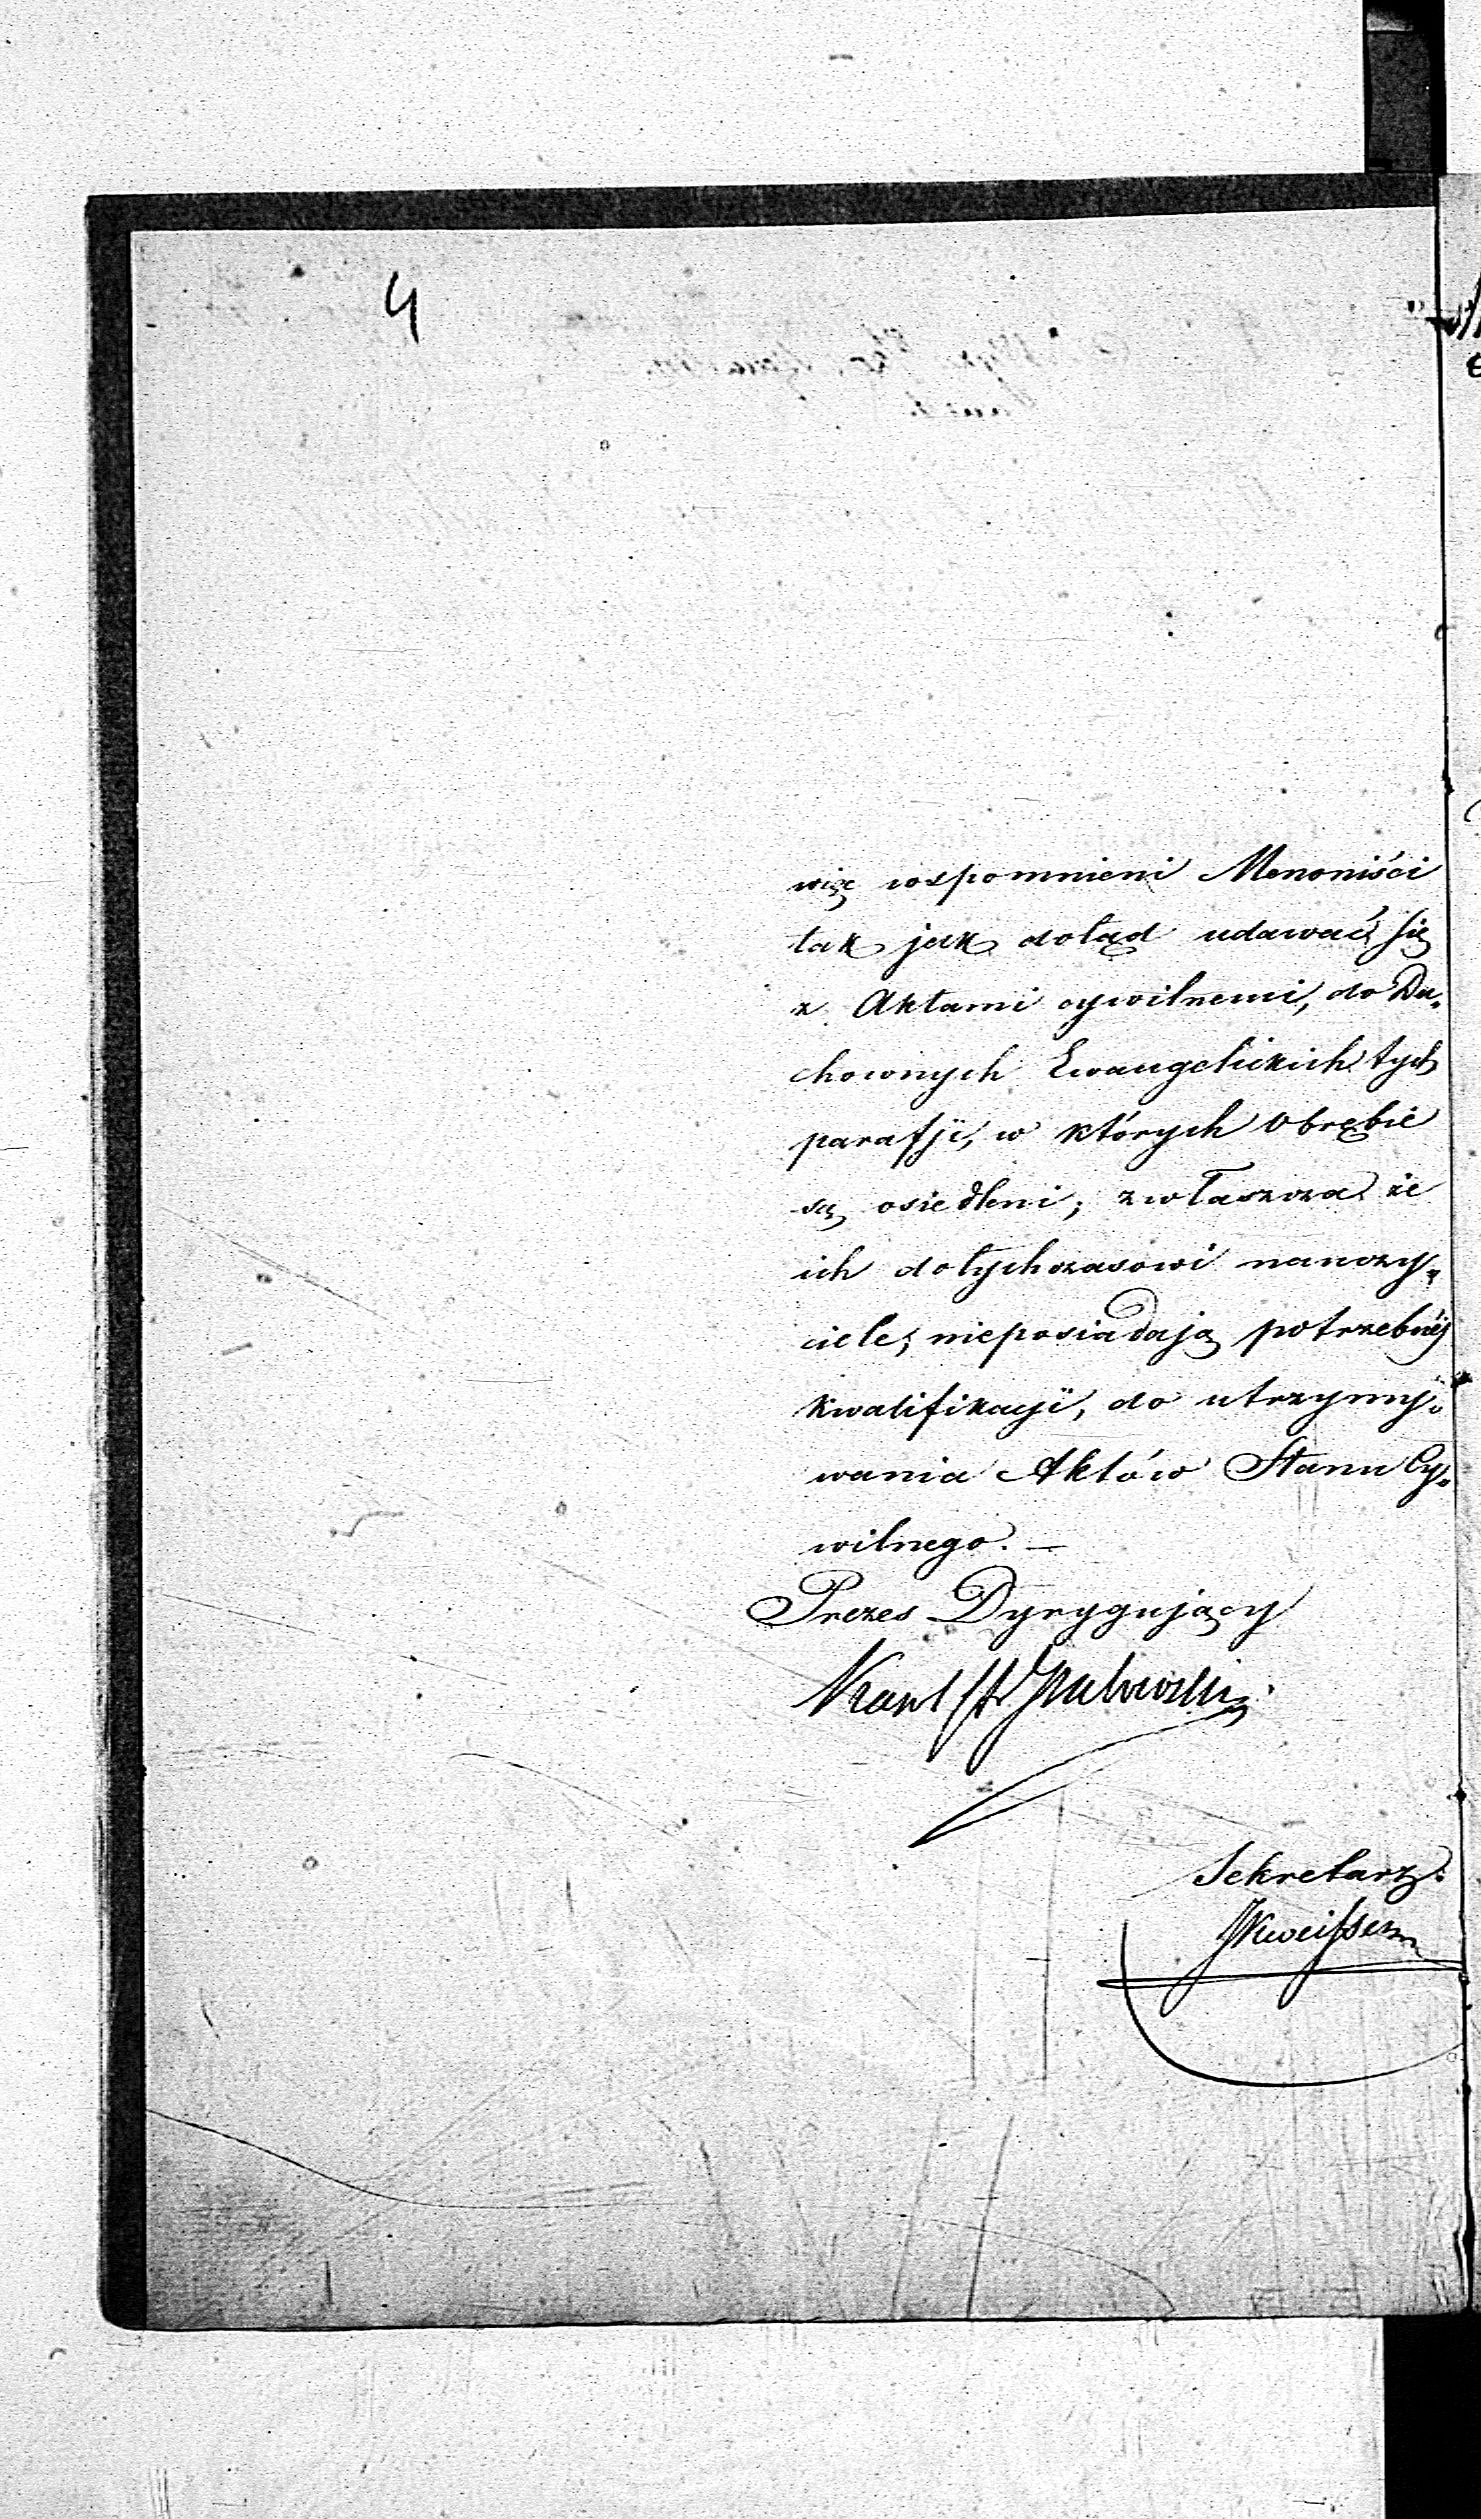 4
więc wspomnieni Menoniści
tak jak dotąd udawać się
z Aktami cywilnemi, do Du„
chownych Ewangelickich tych
parafji, w których obrębie
są osiedleni; zwłaszcza że
ich dotychczasowi nauczy„
ciele, nieposiadają potrzebnéj
kwalifikacji, do utrzymy„
wania Aktów Stanu Cy„
wilnego. —
Prezes Dyrygujący
Sekretarz